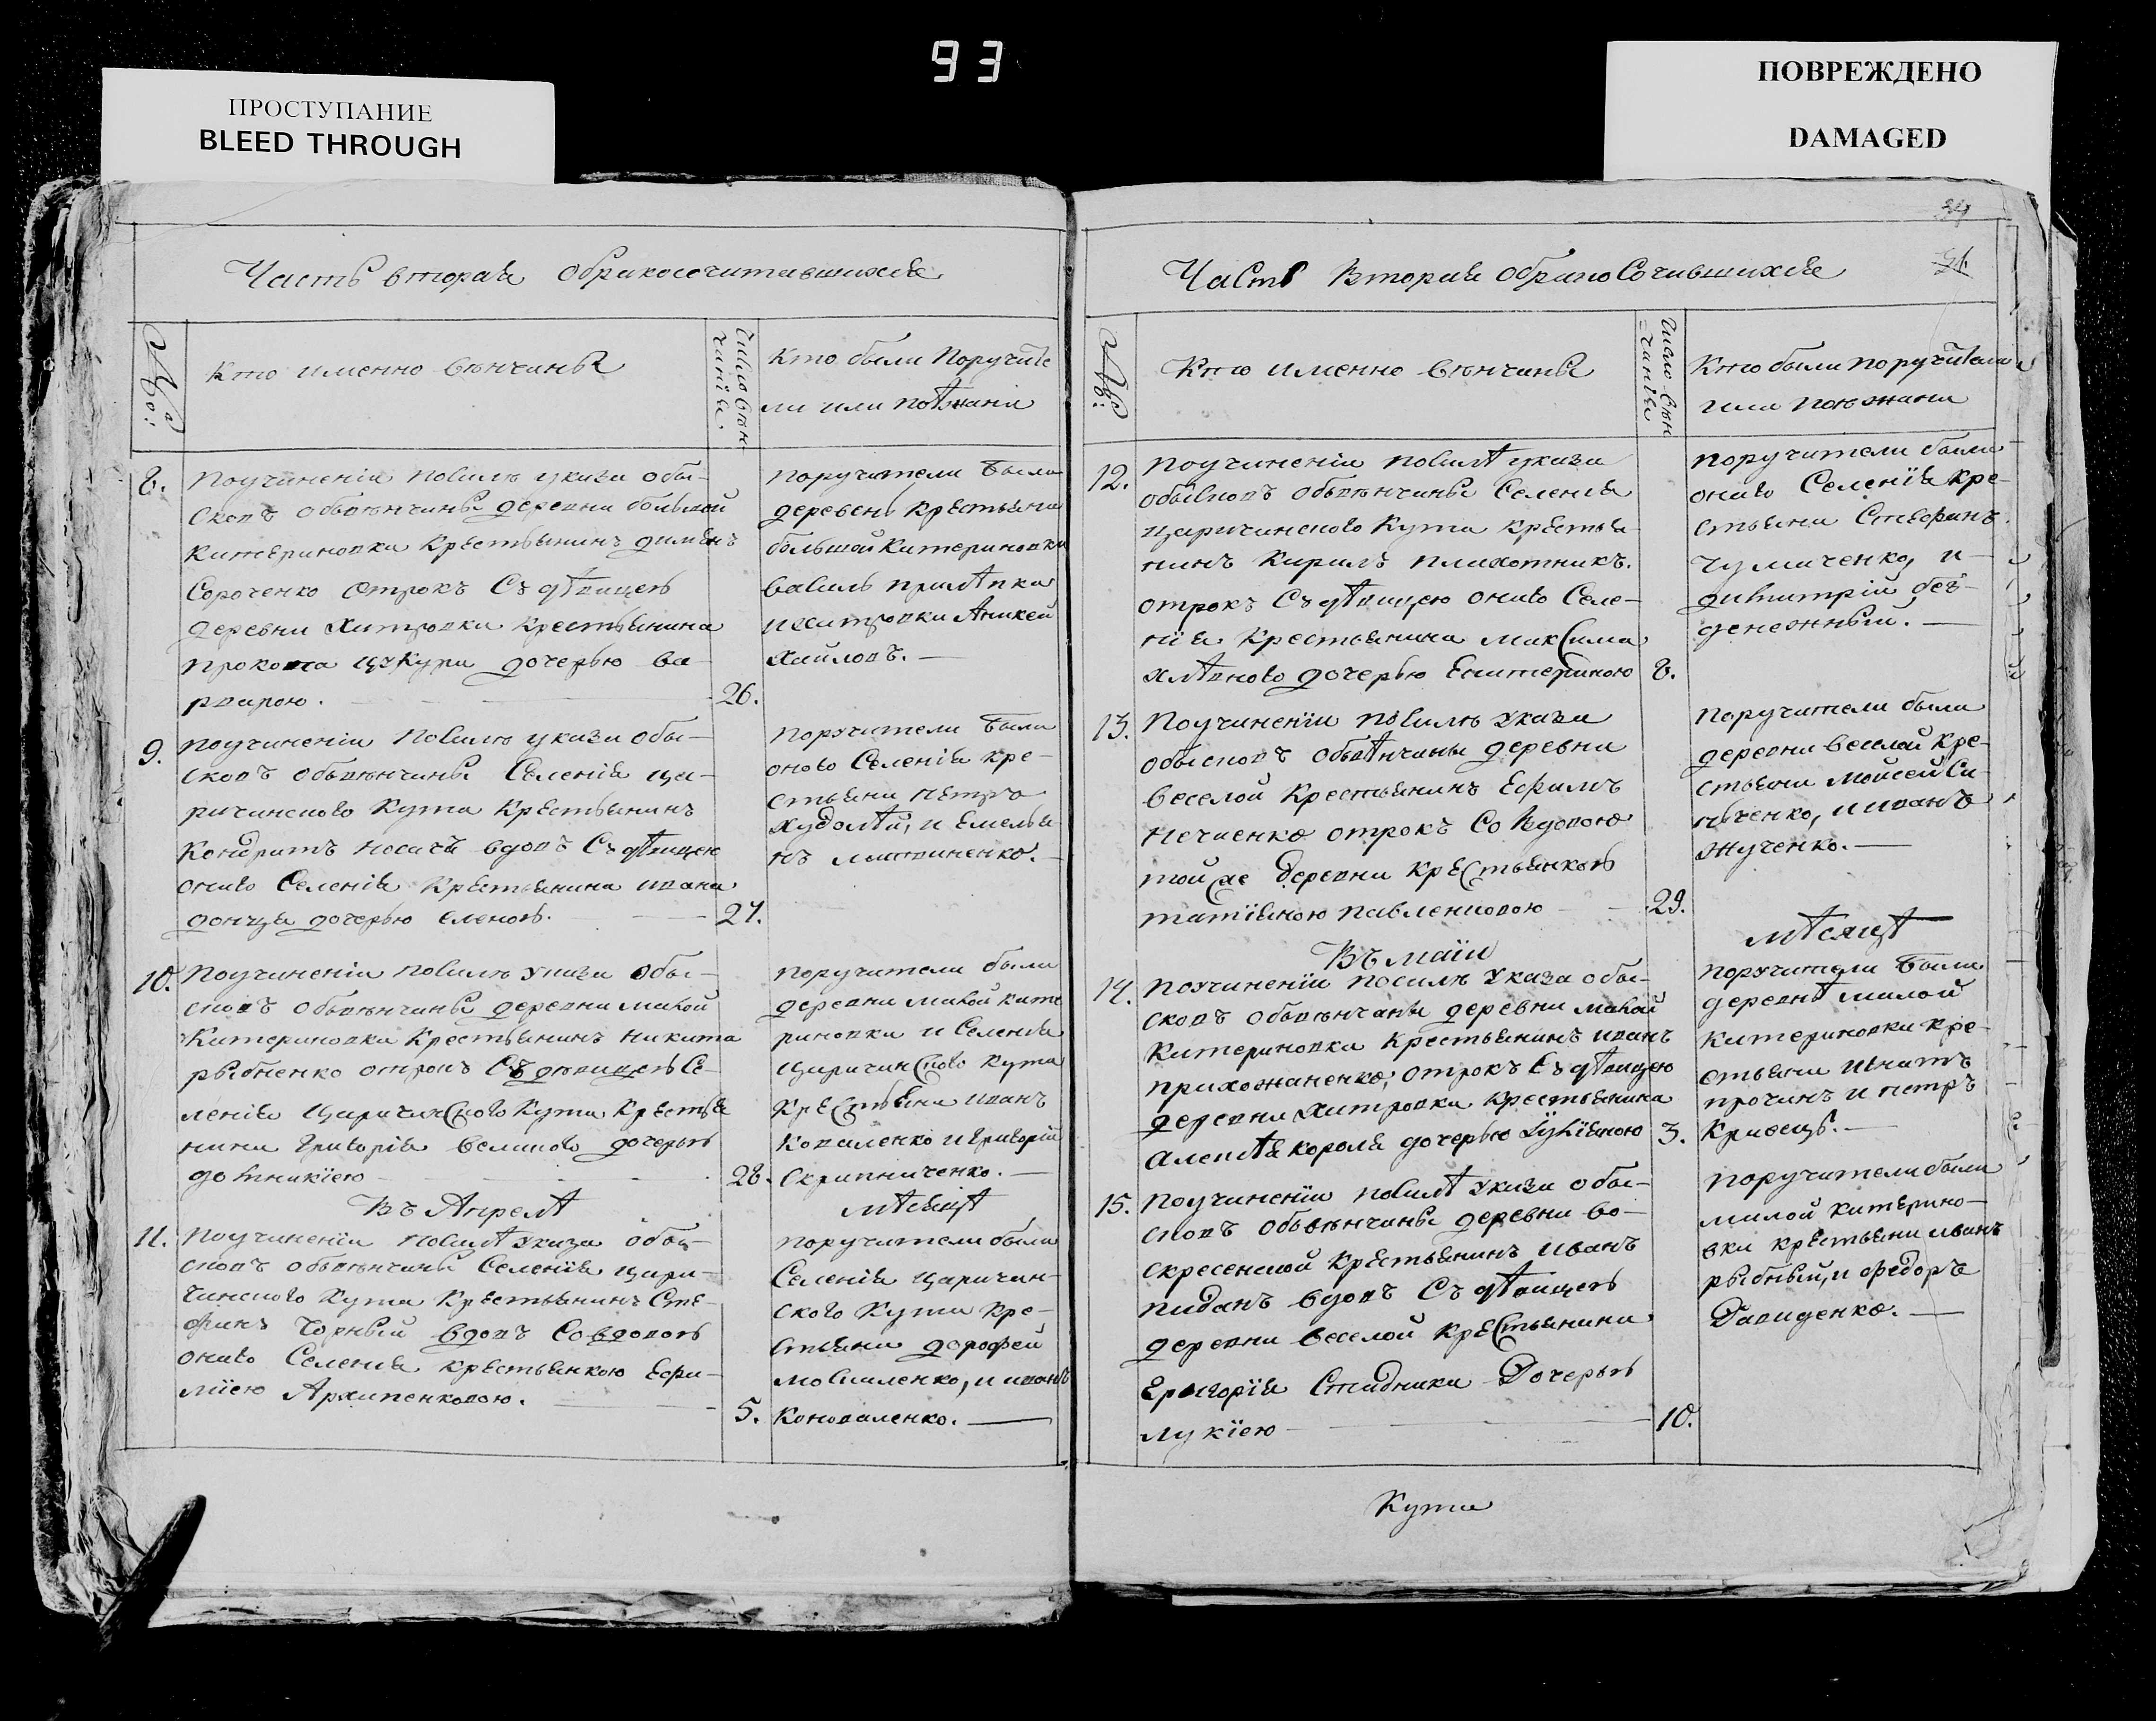 93
ПРОСТУПАНИЕ
BLEED THROUGH
ПОВРЕЖДЕНО
DAMAGED
34
Часть вторая обракосочитавшихся
№:
Кто именно вѣнчаны
Число вѣн
чанія
Кто были Поручите
ли или поѣзжани
8.
Поучиненіи посилѣ указа обы-
сковъ обвѣнчаны деревни большой
катериновки крестьянинъ
Сороченко отрокъ Съ дѣвицею
деревни хитровки крестьянина
прокопа цукура дочерью ва-
рварою.
26.
поручители были
деревень крестьяни
большой катериновки
василь
и хитровки Аникей
хайловъ.
9.
поучиненіи посилѣ указа обы-
сковъ обвѣнчаны Селенія ца-
ричинского кута крестьянинъ
Кондратъ носачъ вдовъ Съ дѣвицею
онаго Селенія крестьянина ивана
донця дочерью еленою.
27.
поручители были
оного Селенія кре-
стьяни петръ
худолѣй, и Емелья-
нъ литвиненко.
10.
Поучиненіи посилѣ указа обы-
сковъ обвѣнчаны деревни малой
Катериновки крестьянинъ никита
рыбненко отрокъ Съ дѣвицею Се-
ленія Царичинского кута крестья
нина григорія великого дочерью
домникіею
28.
поручители были
деревни малой кате
риновки и Селенія
Царичинского кута
крестьяни иванъ
Коваленко и григорій
Скрипниченко.
Въ Апрелѣ
мѣсяцѣ
11.
Поучиненіи посилѣ указа обы-
сковъ обвѣнчаны Селенія цари-
чинского кута крестьянинъ Сте-
фанъ Чорный вдовъ Со вдовою
онаго Селенія крестьянкою Ефи-
міею Архипенковою.
5.
поручители были
Селенія царичин-
ского кута кре-
стьяни дорофей
мовчиленко, и иванъ
Коноваленко.
Часть Вторая обракосочившихся
№:
Кто именно вѣнчаны
Число вѣн
чанія
Кто были поручители
или поѣзжани
12.
Поучиненіи посилѣ указа
обысковъ обвѣнчаны Селенія
царичинского кута крестья-
нинъ Кирилъ плахотникъ.
отрокъ Съ дѣвицею онаго Селе-
нія крестьянина максима
хлѣвного дочерью Екатериною
8.
поручители были
онаго Селенія кре-
стьяни Стефанъ
чумаченко, и
димитрій без-
денежный.
13.
Поучиненіи посилѣ указа
обысковъ обвѣнчаны деревни
веселой крестьянинъ Ефимъ
нечаенко отрокъ Со вдовою
той же деревни крестьянкою
татіяною павленковою
29.
поручители были
деревни веселой кре-
стьяни Мойсей Си-
ниченко, и иванъ
жученко.
Въ маіи
мѣсяцѣ
14.
поучиненіи посилѣ указа обы-
сковъ обвѣнчаны деревни малой
катериновки крестьянинъ иванъ
прихожаненко, отрокъ Съ дѣвицею
деревни хитровки крестьянина
алексѣя короля дочерью Іуліяною
3.
поручители были
деревнѣ малой
катериновки кре-
стьяни игнатъ
прочанъ и петръ
кривецъ.
15.
Поучиненіи посилѣ указа обы-
сковъ обвѣнчаны деревни во-
скресенской крестьянинъ иванъ
пиданъ вдовъ Съ дѣвицею
деревни веселой крестьянина
Григорія Стадника дочерью
лукіею
10.
поручители были
малой катерино-
вки крестьяни иванъ
рыбный, и федоръ
Давиденко.
Кута